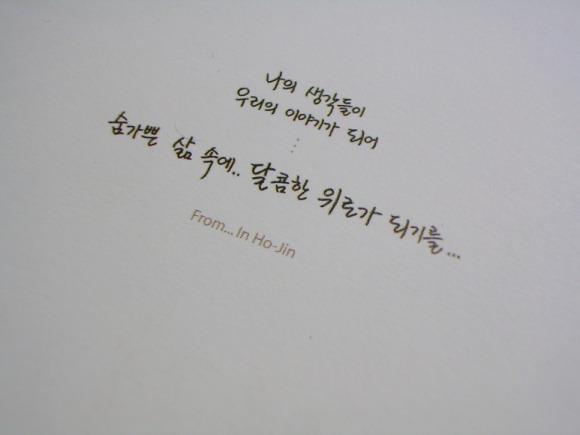 나의 생각들이
우리의 이야기가 되어
⋮
숨가쁜 삶 속에.. 달콤한 위로가 되기를...
From... In Ho-Jin